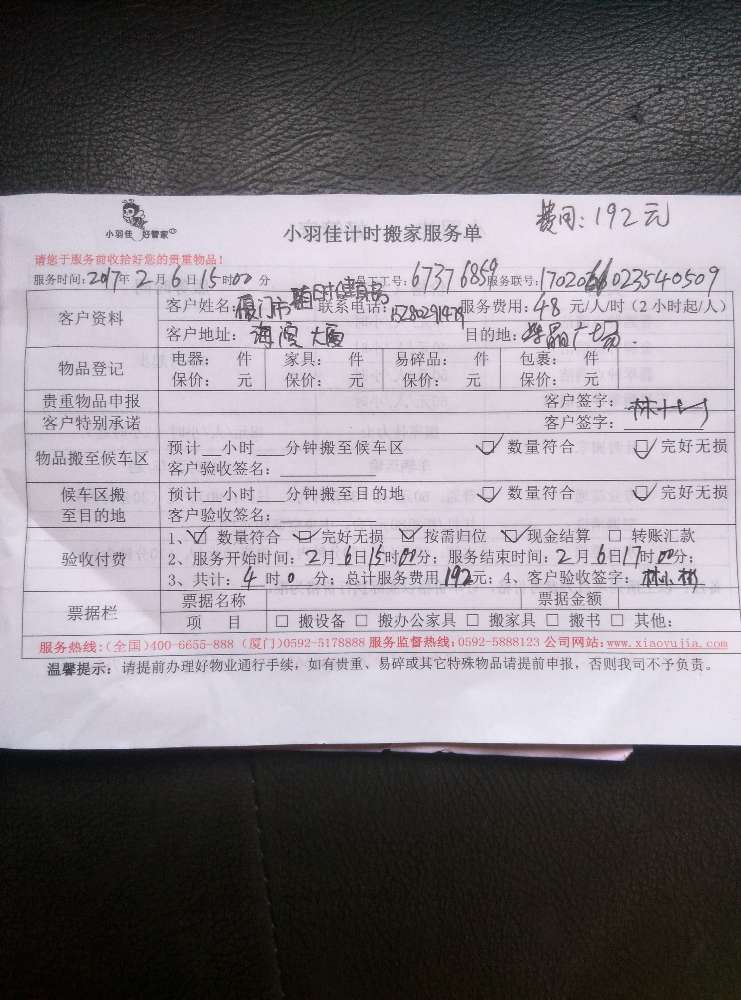 费用:192元
小羽佳 好管家
小羽佳计时搬家服务单
请您于服务前收拾好您的贵重物品!
服务时间:2017年2月6日15时00分 员工工号:67376859 服务联号:1702066023540509
客户资料
客户姓名:厦门市 联系电话:15280291479 服务费用:48 元/人/时(2小时起/人)
客户地址:海滨大厦 目的地:广场
物品登记
电器: 件 家具: 件 易碎品: 件 包裹: 件
保价: 元 保价: 元 保价: 元 保价: 元
贵重物品申报 客户签字:
客户特别承诺 客户签字:
物品搬至候车区
预计__小时___分钟搬至候车区 ☑数量符合 ☑完好无损
客户验收签名:
候车区搬至目的地
预计__小时___分钟搬至目的地 ☑数量符合 ☑完好无损
客户验收签名:
验收付费
1、☑数量符合 ☑完好无损 ☑按需归位 ☑现金结算 □转账汇款
2、服务开始时间:2月6日15时00分;服务结束时间:2月6日17时00分;
3、共计:4时0分;总计服务费用192元;4、客户验收签字:林小彬
票据栏
票据名称 票据金额
项 目 □搬设备 □搬办公家具 □搬家具 □搬书 □其他:
服务热线:(全国)400-6655-888 (厦门)0592-5178888 服务监督热线:0592-5888123 公司网站:www.xiaoyujia.com
温馨提示:请提前办理好物业通行手续,如有贵重、易碎或其它特殊物品请提前申报,否则我司不予负责。